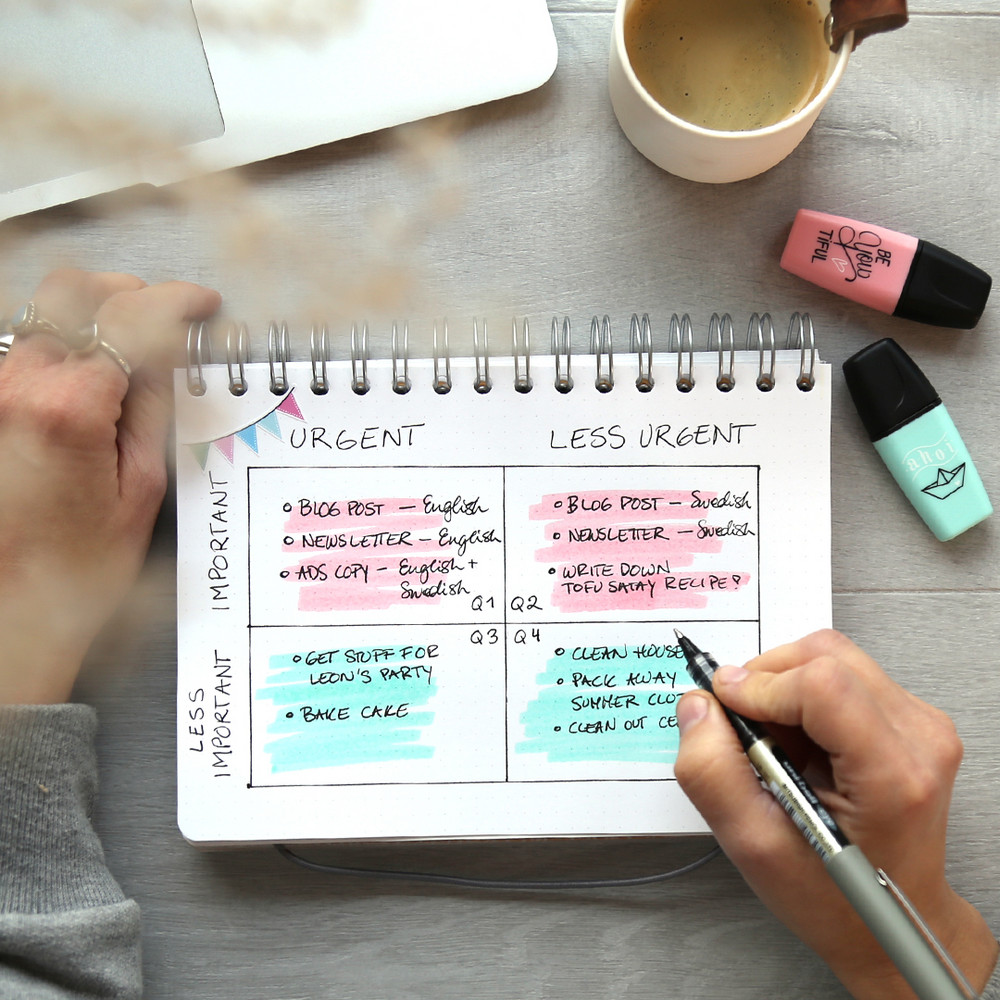 BE
You
TIFUL
ahoi
URGENT
LESS URGENT
IMPORTANT
BLOG POST — English
NEWSLETTER — English
ADS COPY — English +
Swedish
Q1
Q2
BLOG POST — Swedish
NEWSLETTER — Swedish
WRITE DOWN
TOFU SATAY RECIPE?
LESS
IMPORTANT
Q3
Q4
GET STUFF FOR
LEON'S PARTY
BAKE CAKE
CLEAN HOUSE
PACK AWAY
SUMMER
CLEAN OUT